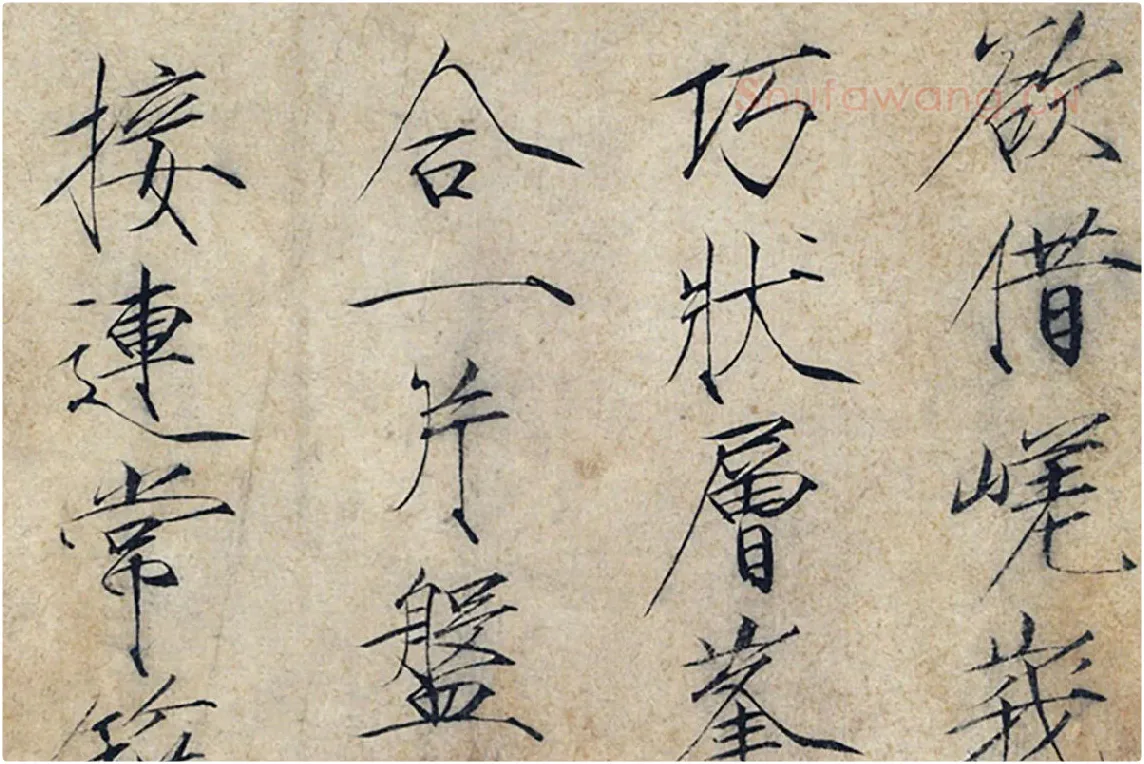 欲借嵯峩
巧狀層峯
合一片盤
接連常
Shufawang.cn